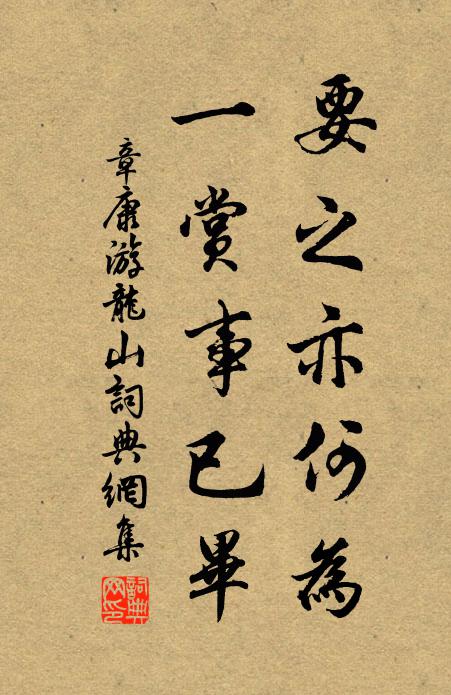 要之亦何為
一賞事已畢
章康游龍山詞典網集
詞典
网印